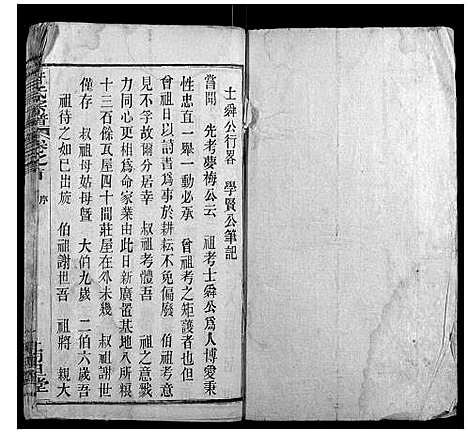 士舜公行畧　學賢公筆記
嘗聞　先考夢梅公云　祖考士舜公為人博愛秉
性忠直一舉一動必承　曾祖考之矩護者也但
曾祖日以詩書為事於耕耘不免偏廢　伯祖考意
見不孚故爾分居幸　叔祖考體吾　祖之意戮
力同心更相為命家業由此日新廣置基地八所糧
十三石餘瓦屋四十間莊屋在外未幾　叔祖謝世
僅存　叔祖母姑母曁　大伯九歲　二伯六歲吾
祖待之如已出旋　伯祖謝世吾　祖將　親大
氏宗譜　卷之首　序